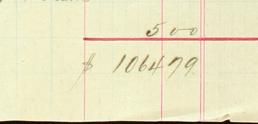 5 00
$ 1064 79